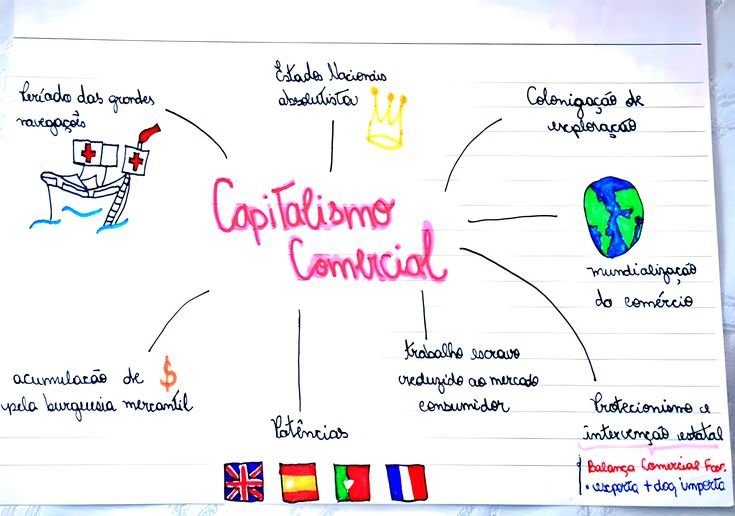 Período das grandes
navegações
Estados Nacionais
absolutista
Colonização de
exploração
Capitalismo
Comercial
mundialização
do comércio
acumulação de $
pela burguesia mercantil
trabalho escravo
reduzido ao mercado
consumidor
Potências
Protecionismo e
intervenção estatal
Balança Comercial Fav.
• exporta + doq importa